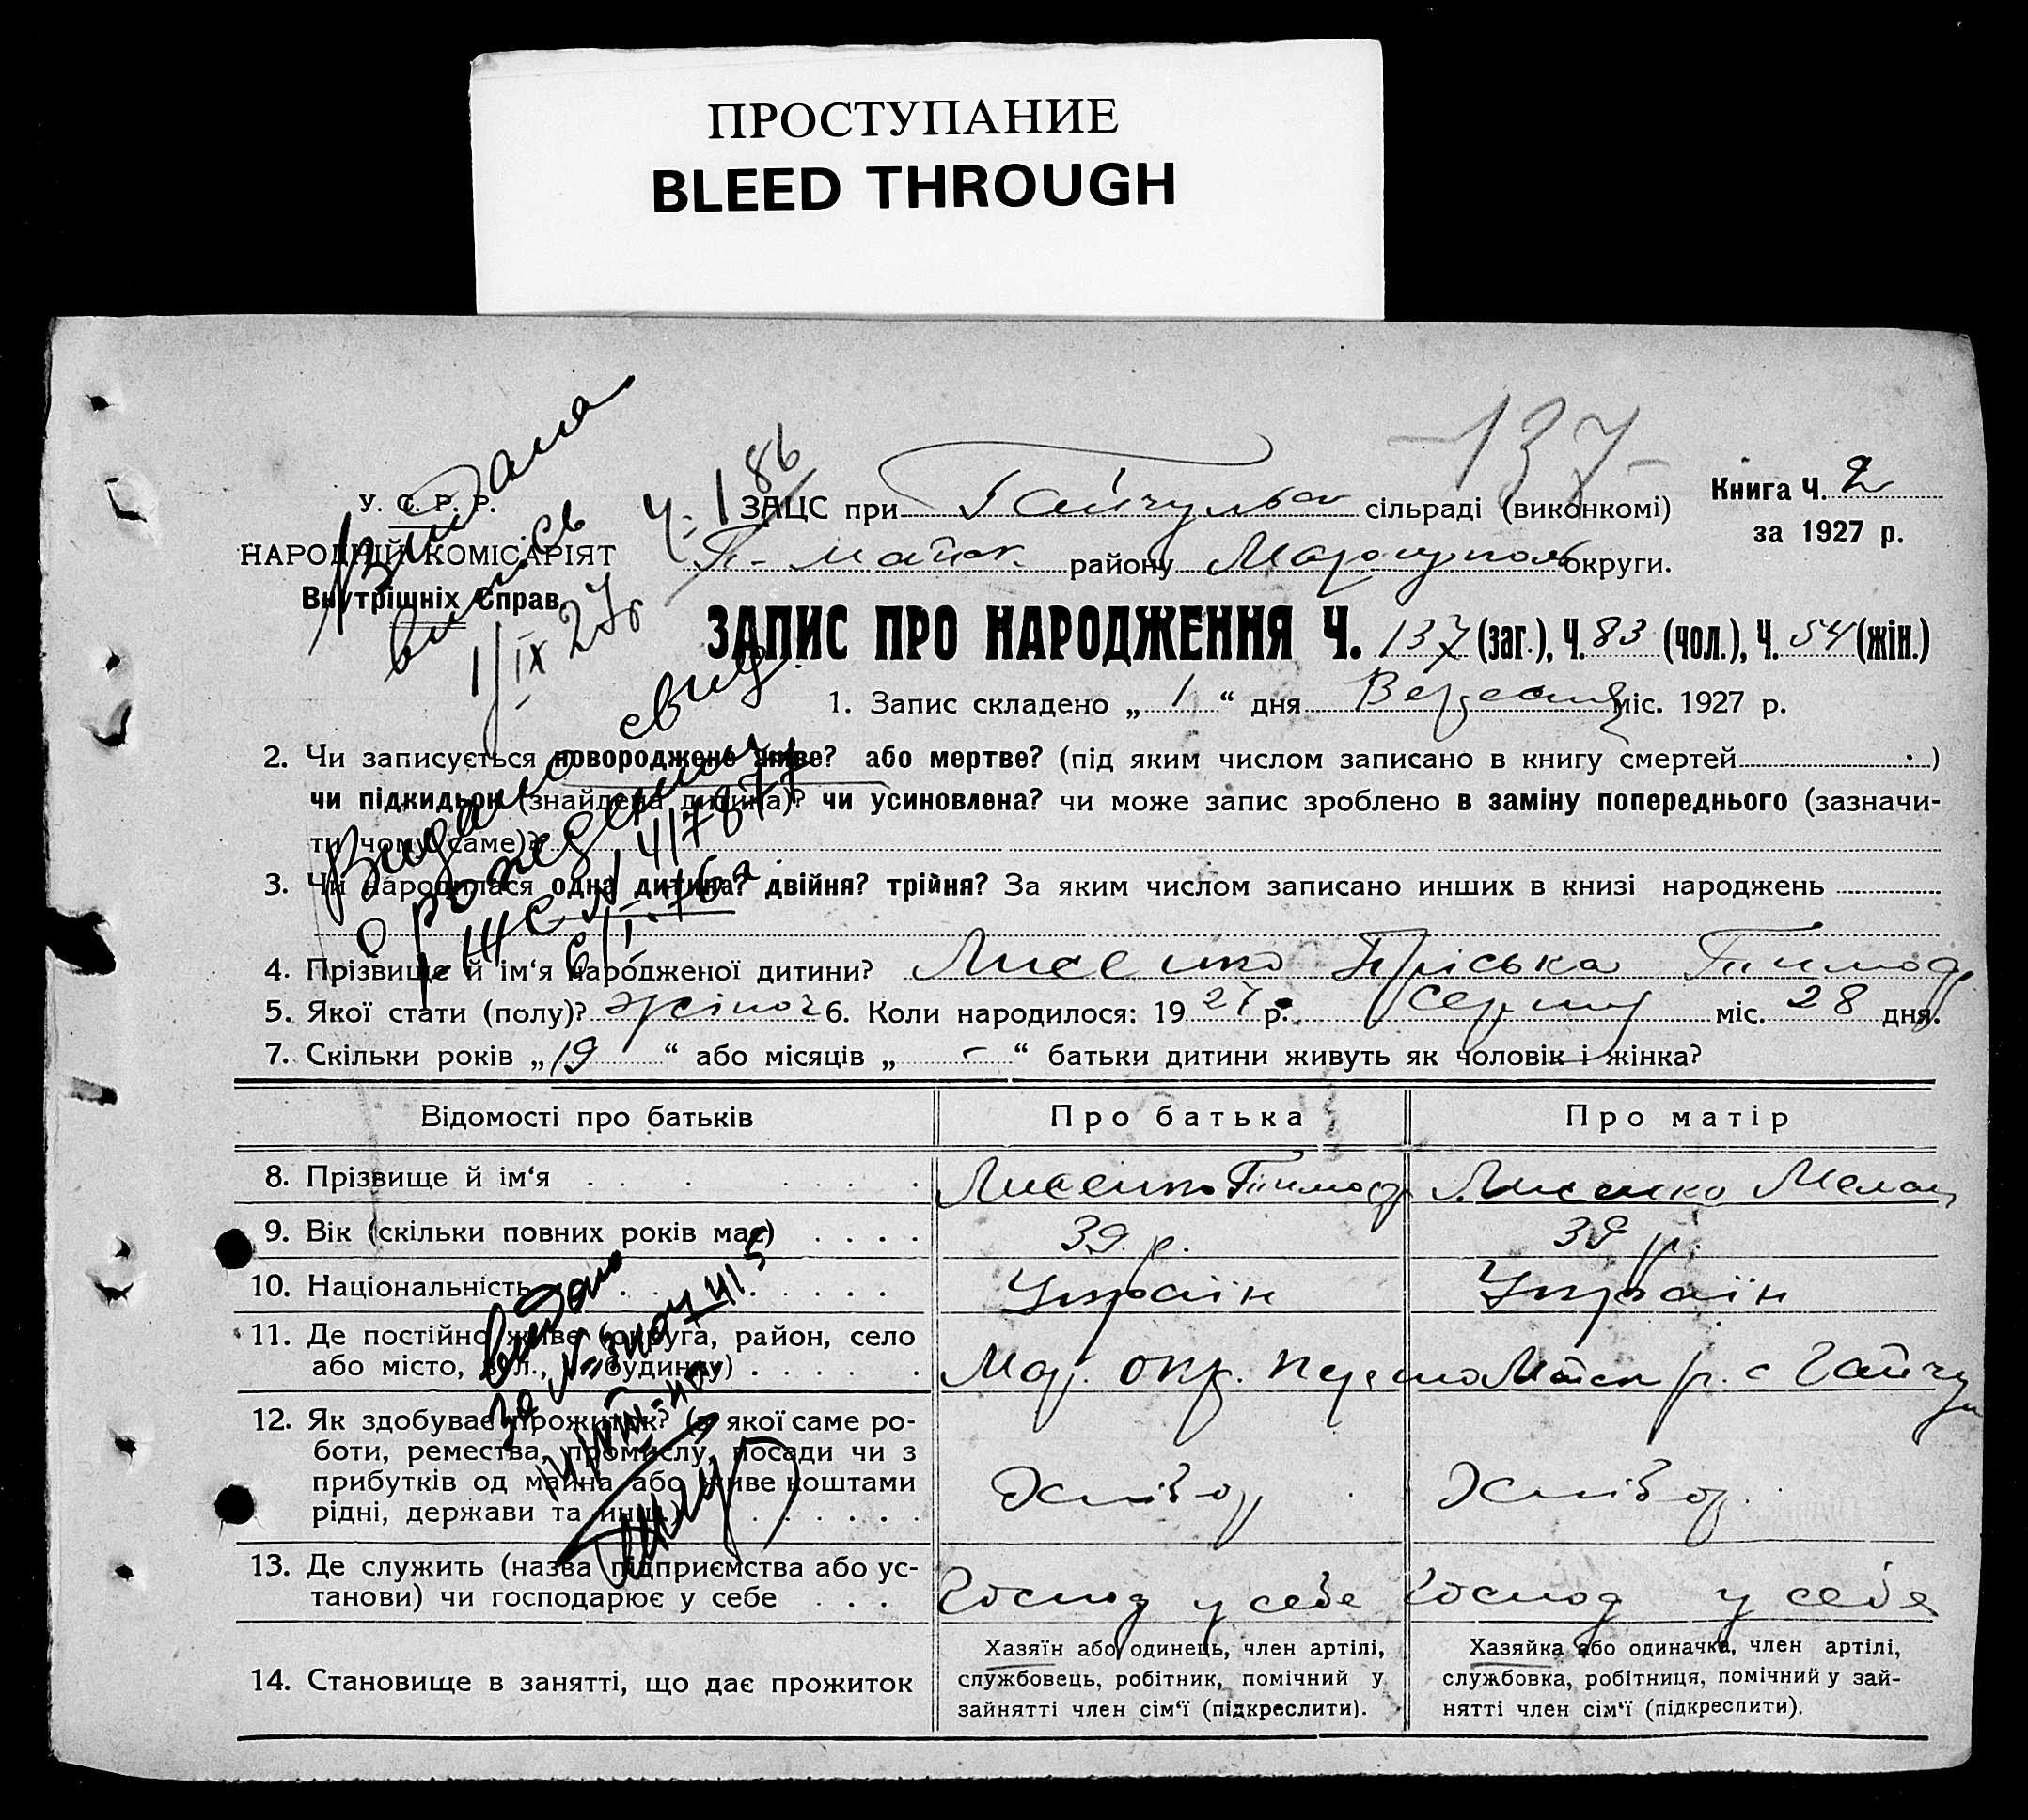 ПРОСТУПАНИЕ
BLEED THROUGH
137
У. С. Р. Р.
НАРОДНІЙ КОМІСАРІЯТ
Внутрішніх Справ
Видана
випись
1/IX 27 г
Ч. 186
ЗАЦС при Гайчульск сільраді (виконкомі)
П-майск. району Маріупол округи.
Книга Ч. 2
за 1927 р.
ЗАПИС ПРО НАРОДЖЕННЯ Ч. 137 (заг.), Ч. 83 (чол.), Ч. 54 (жін.)
1. Запис складено „ 1 “ дня Вересня міс. 1927 р.
2. Чи записується новороджене живе? або мертве? (під яким числом записано в книгу смертей )
чи підкидьок (знайдена дитина)? чи усиновлена? чи може запис зроблено в заміну попереднього (зазначи-
ти чому саме)?
3. Чи народилася одна дитина? двійня? трійня? За яким числом записано инших в книзі народжень
Видано свид.
о рождении
I-ЖС N 417877
6/I-76 г.
4. Прізвище й ім‘я народженої дитини? Лисенко Пріська Тимоф
5. Якої стати (полу)? жіноч 6. Коли народилося: 1927 р. Серпня міс. 28 дня.
7. Скільки років „ 19 “ або місяців „ - “ батьки дитини живуть як чоловік і жінка?
Відомості про батьків Про батька Про матір
8. Прізвище й ім‘я . . . . . . Лисенко Тимоф Лисенко Мелан
9. Вік (скільки повних років має) . . . . 39 р. 39 р.
10. Національність . . . . . . . Україн Україн
11. Де постійно живе (округа, район, село
або місто, вул., № будинку) . . . . . . Мар. окр. Першо Майск р. с Гайчул
видано
за №
12. Як здобуває прожиток? (з якої саме ро-
боти, ремества, промислу, посади чи з
прибутків од майна або живе коштами
рідні, держави та инш.) . . . . . . Хлібор. Хлібор.
13. Де служить (назва підприємства або ус-
танови) чи господарює у себе . . . Господ у себе Господ у себе
14. Становище в занятті, що дає прожиток
Хазяїн або одинець, член артілі,
службовець, робітник, помічний у
зайнятті член сім‘ї (підкреслити).
Хазяйка або одиначка, член артілі,
службовка, робітниця, помічний у зай-
нятті член сім‘ї (підкреслити).